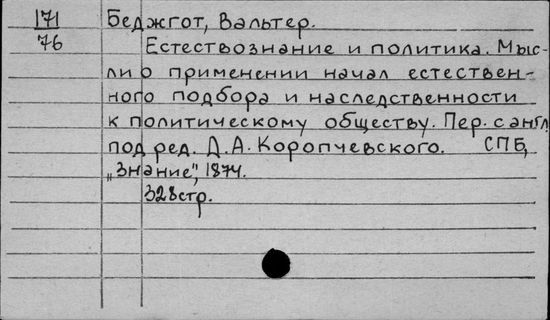 171 Беджгот, Вальтер.
76 Естествознание и политика. Мыс-
ли о применении начал естествен-
ного подбора и наследственности
к политическому обществу. Пер. с англ.
под ред. Д.А. Коропчевского. СПБ,
„Знание", 1874.
328стр.